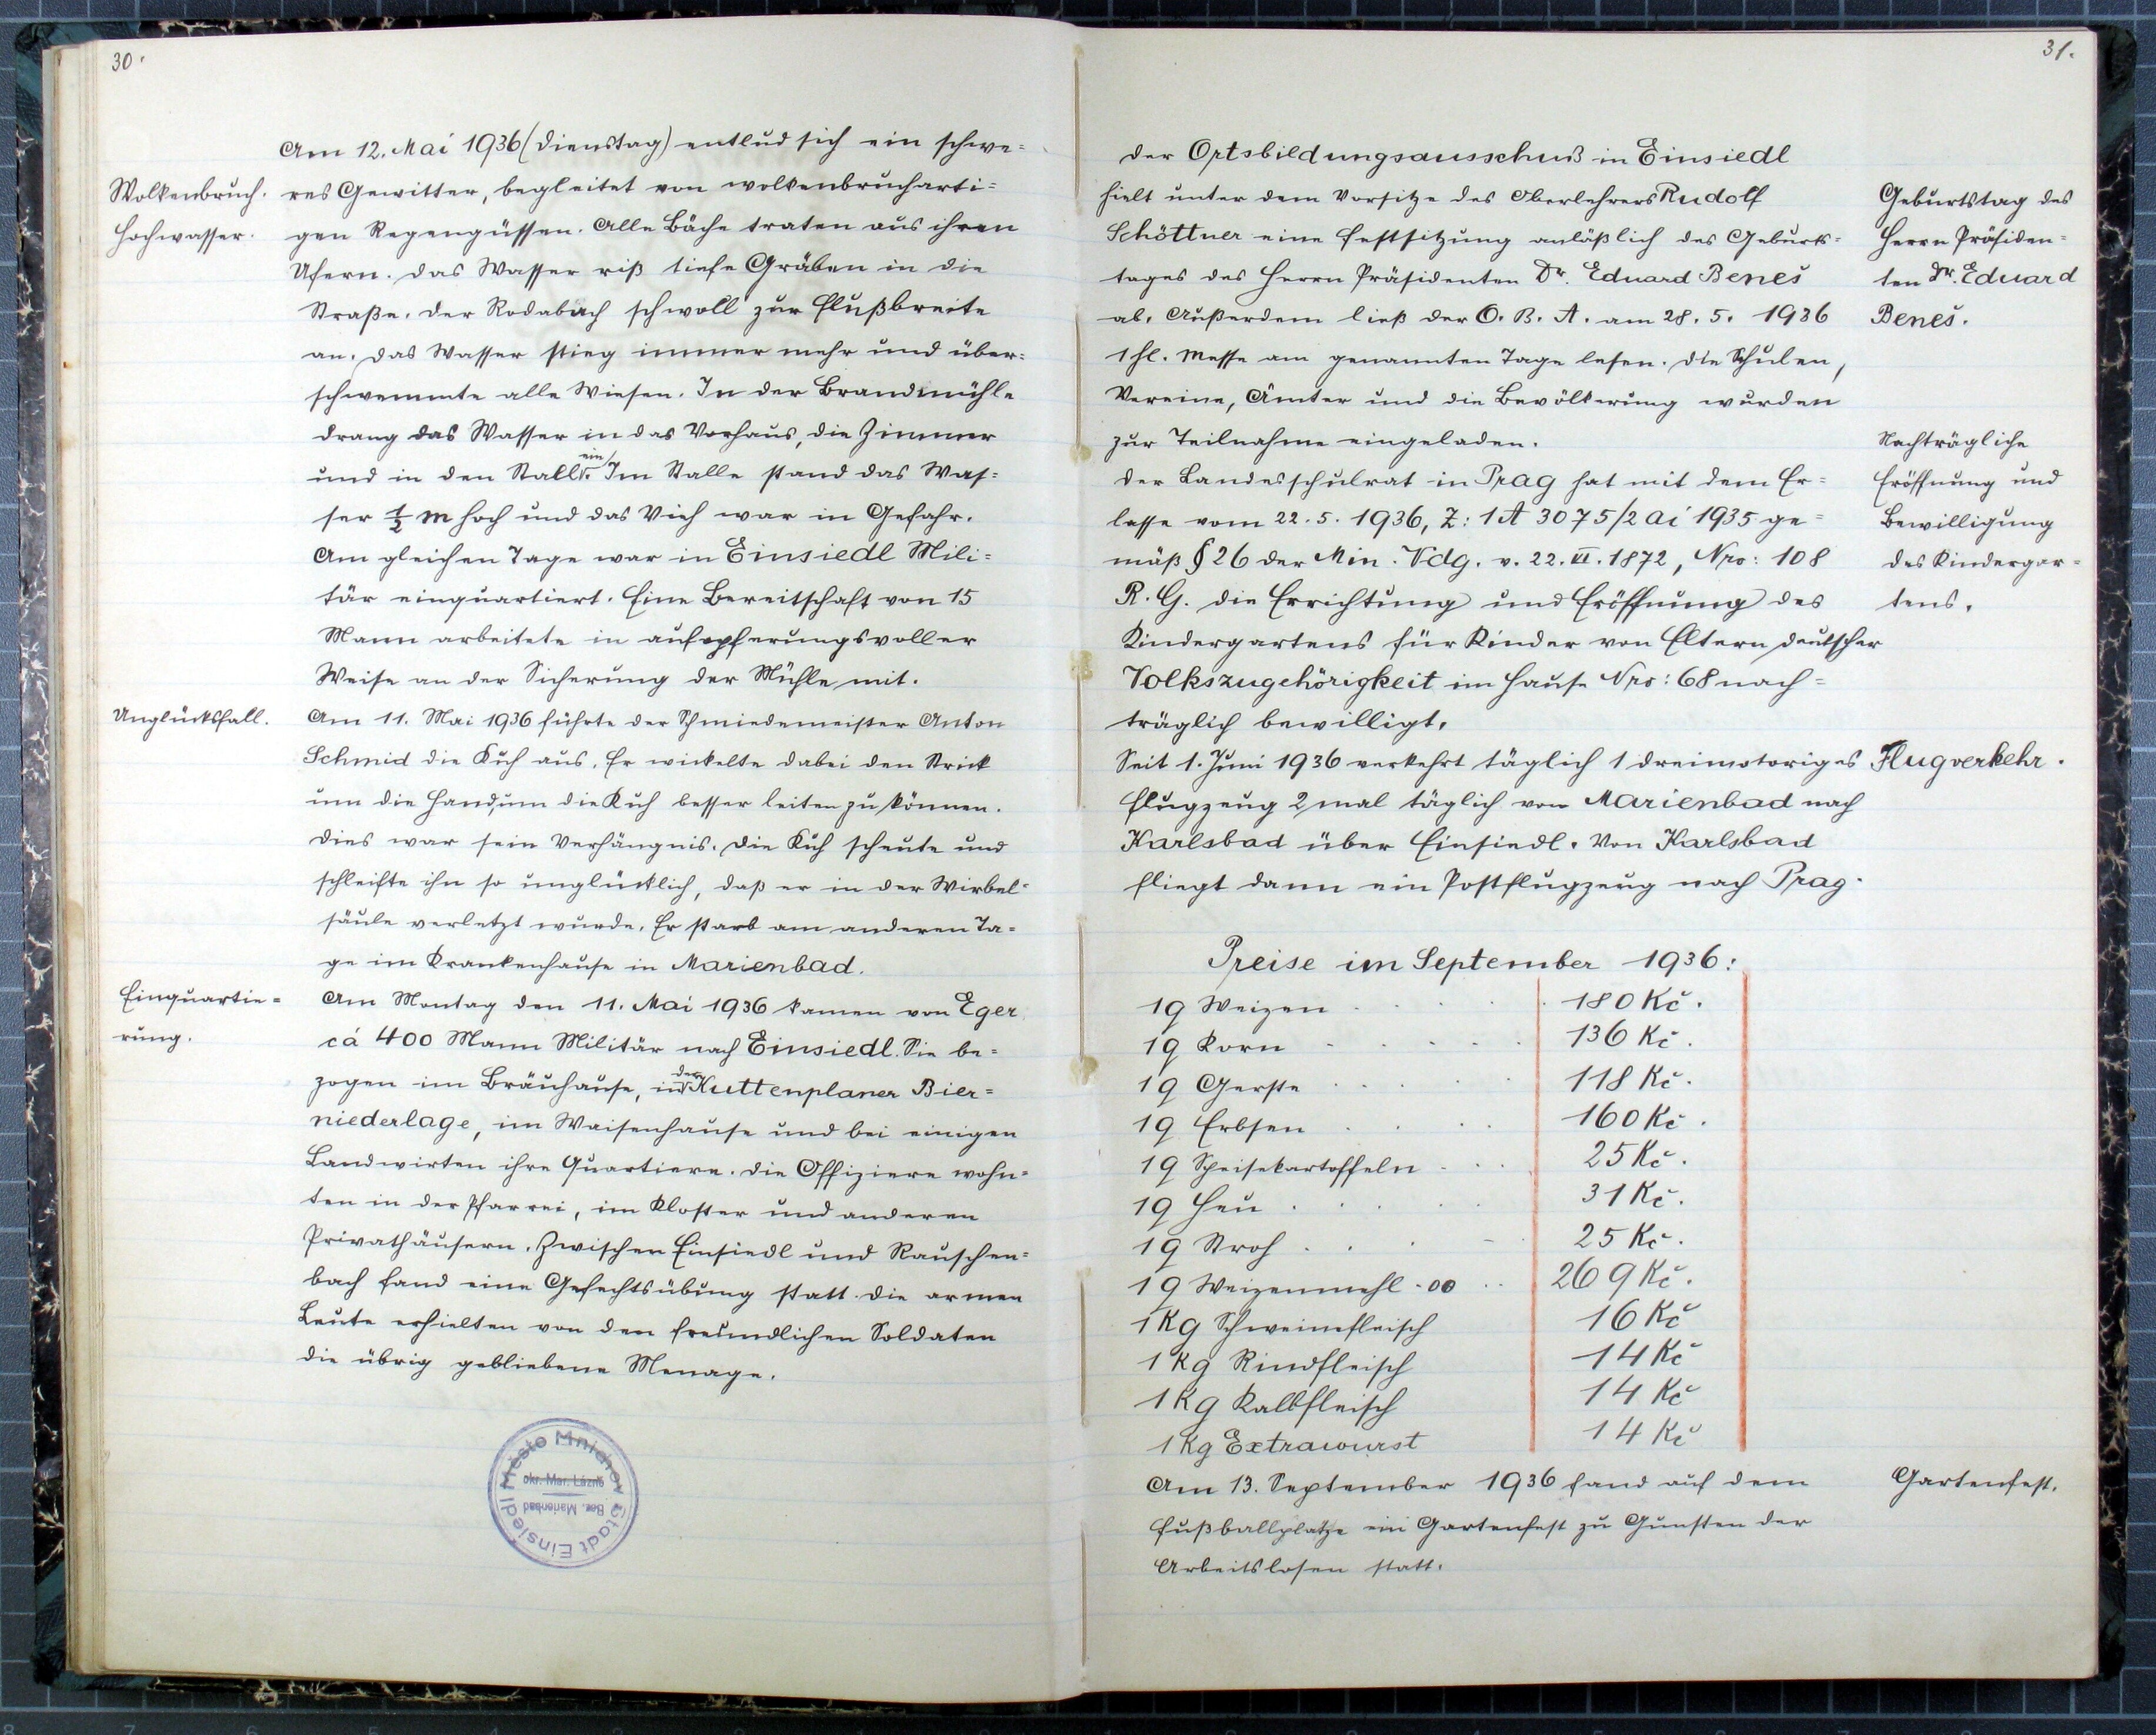 30.
Am 12. Mai 1936 (Dienstag) entlud sich ein schwe=
Wolkenbruch.
res Gewitter, begleitet von wolkenbrucharti=
Hochwasser.
gen Regengüssen. Alle Bäche traten aus ihren
Ufern. Das Wasser riß tiefe Gräben in die
Straße. Der Rodabach schwoll zur Flußbreite
an. Das Wasser stieg immer mehr und über=
schwemmte alle Wiesen. In der Brandmühle
drang das Wasser in das Vorhaus, die Zimmer
und in den Stall ein. Im Stalle stand das Was=
ser ½ m hoch und das Vieh war in Gefahr.
Am gleichen Tage war in Einsiedl Mili=
tär einquartiert. Eine Bereitschaft von 15
Mann arbeitete in aufopferungsvoller
Weise an der Sicherung der Mühle mit.
Unglücksfall.
Am 11. Mai 1936 führte der Schmiedemeister Anton
Schmid die Kuh aus. Er wickelte dabei den Strick
um die Hand, um die Kuh besser leiten zu können.
Dies war sein Verhängnis. Die Kuh scheute und
schleifte ihn so unglücklich, daß er in der Wirbel=
säule verletzt wurde. Er starb am anderen Ta=
ge im Krankenhause in Marienbad.
Einquartie=
rung.
Am Montag den 11. Mai 1936 kamen von Eger
cá 400 Mann Militär nach Einsiedl. Sie be=
zogen im Bräuhause, in der Kuttenplaner Bier=
niederlage, im Waisenhause und bei einigen
Landwirten ihre Quartiere. Die Offiziere wohn=
ten in der Pfarrei, im Kloster und anderen
Privathäusern. Zwischen Einsiedl und Rauschen=
bach fand eine Gefechtsübung statt. Die armen
Leute erhielten von den freundlichen Soldaten
die übrig gebliebene Menage.
Město Mnichov
okr. Mar. Lázně
Bez. Marienbad
Stadt Einsiedl
31.
Der Ortsbildungsausschuß in Einsiedl
hielt unter dem Vorsitze des Oberlehrers Rudolf
Schöttner eine Festsitzung anläßlich des Geburts=
tages des Herrn Präsidenten Dr. Eduard Beneš
ab. Außerdem ließ der O. B. A. am 28. 5. 1936
1 hl. Messe am genannten Tage lesen. Die Schulen,
Vereine, Ämter und die Bevölkerung wurden
zur Teilnahme eingeladen.
Geburtstag des
Herrn Präsiden=
ten Dr. Eduard
Beneš.
Der Landesschulrat in Prag hat mit dem Er=
lasse vom 22. 5. 1936, Z: 1 A 3075/2 ai 1935 ge=
mäß § 26 der Min. Vdg. v. 22. VI. 1872, Nro: 108
R. G. die Errichtung und Eröffnung des
Kindergartens für Kinder von Eltern deutscher
Volkszugehörigkeit im Hause Nro: 68 nach=
träglich bewilligt.
Nachträgliche
Eröffnung und
Bewilligung
des Kindergar=
tens.
Seit 1. Juni 1936 verkehrt täglich 1 dreimotoriges
Flugzeug 2 mal täglich von Marienbad nach
Karlsbad über Einsiedl. Von Karlsbad
fliegt dann ein Postflugzeug nach Prag.
Flugverkehr.
Preise im September 1936:
1q Weizen . . . 180 Kč.
1q Korn . . . . . 136 Kč.
1q Gerste . . . . . 118 Kč.
1q Erbsen . . . . 160 Kč.
1q Speisekartoffeln . . . 25 Kč.
1q Heu . . . . . 31 Kč.
1q Stroh . . . . 25 Kč.
1q Weizenmehl - 00 . . 269 Kč.
1 Kg Schweinefleisch 16 Kč
1 Kg Rindfleisch 14 Kč
1 Kg Kalbfleisch 14 Kč
1 Kg Extrawurst 14 Kč
Am 13. September 1936 fand auf dem
Fußballplatze ein Gartenfest zu Gunsten der
Arbeitslosen statt.
Gartenfest.